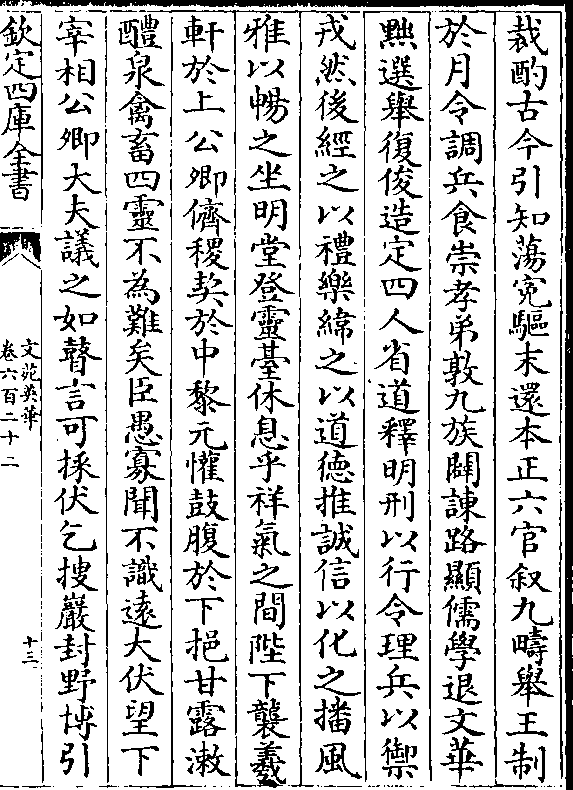 裁酌古今引知蕩寃驅末還本正六官叙九疇舉王制
於月令調兵食崇孝弟敦九族闢諌路顯儒學退文華
㸃選舉復俊造定四人省道釋明刑以行令理兵以禦
戎然後經之以禮樂緯之以道德推誠信以化之播風
雅以暢之坐明堂登靈臺休息乎祥氣之間陛下襲羲
軒於上公卿儕稷契於中黎元懽鼓腹於下挹甘露漱
醴泉禽畜四靈不為難矣臣愚寡聞不識逺大伏望下
宰相公卿大夫議之如瞽言可採伏乞搜巖封野博引
欽定四庫全書
文苑英華
卷六百二十二
十三